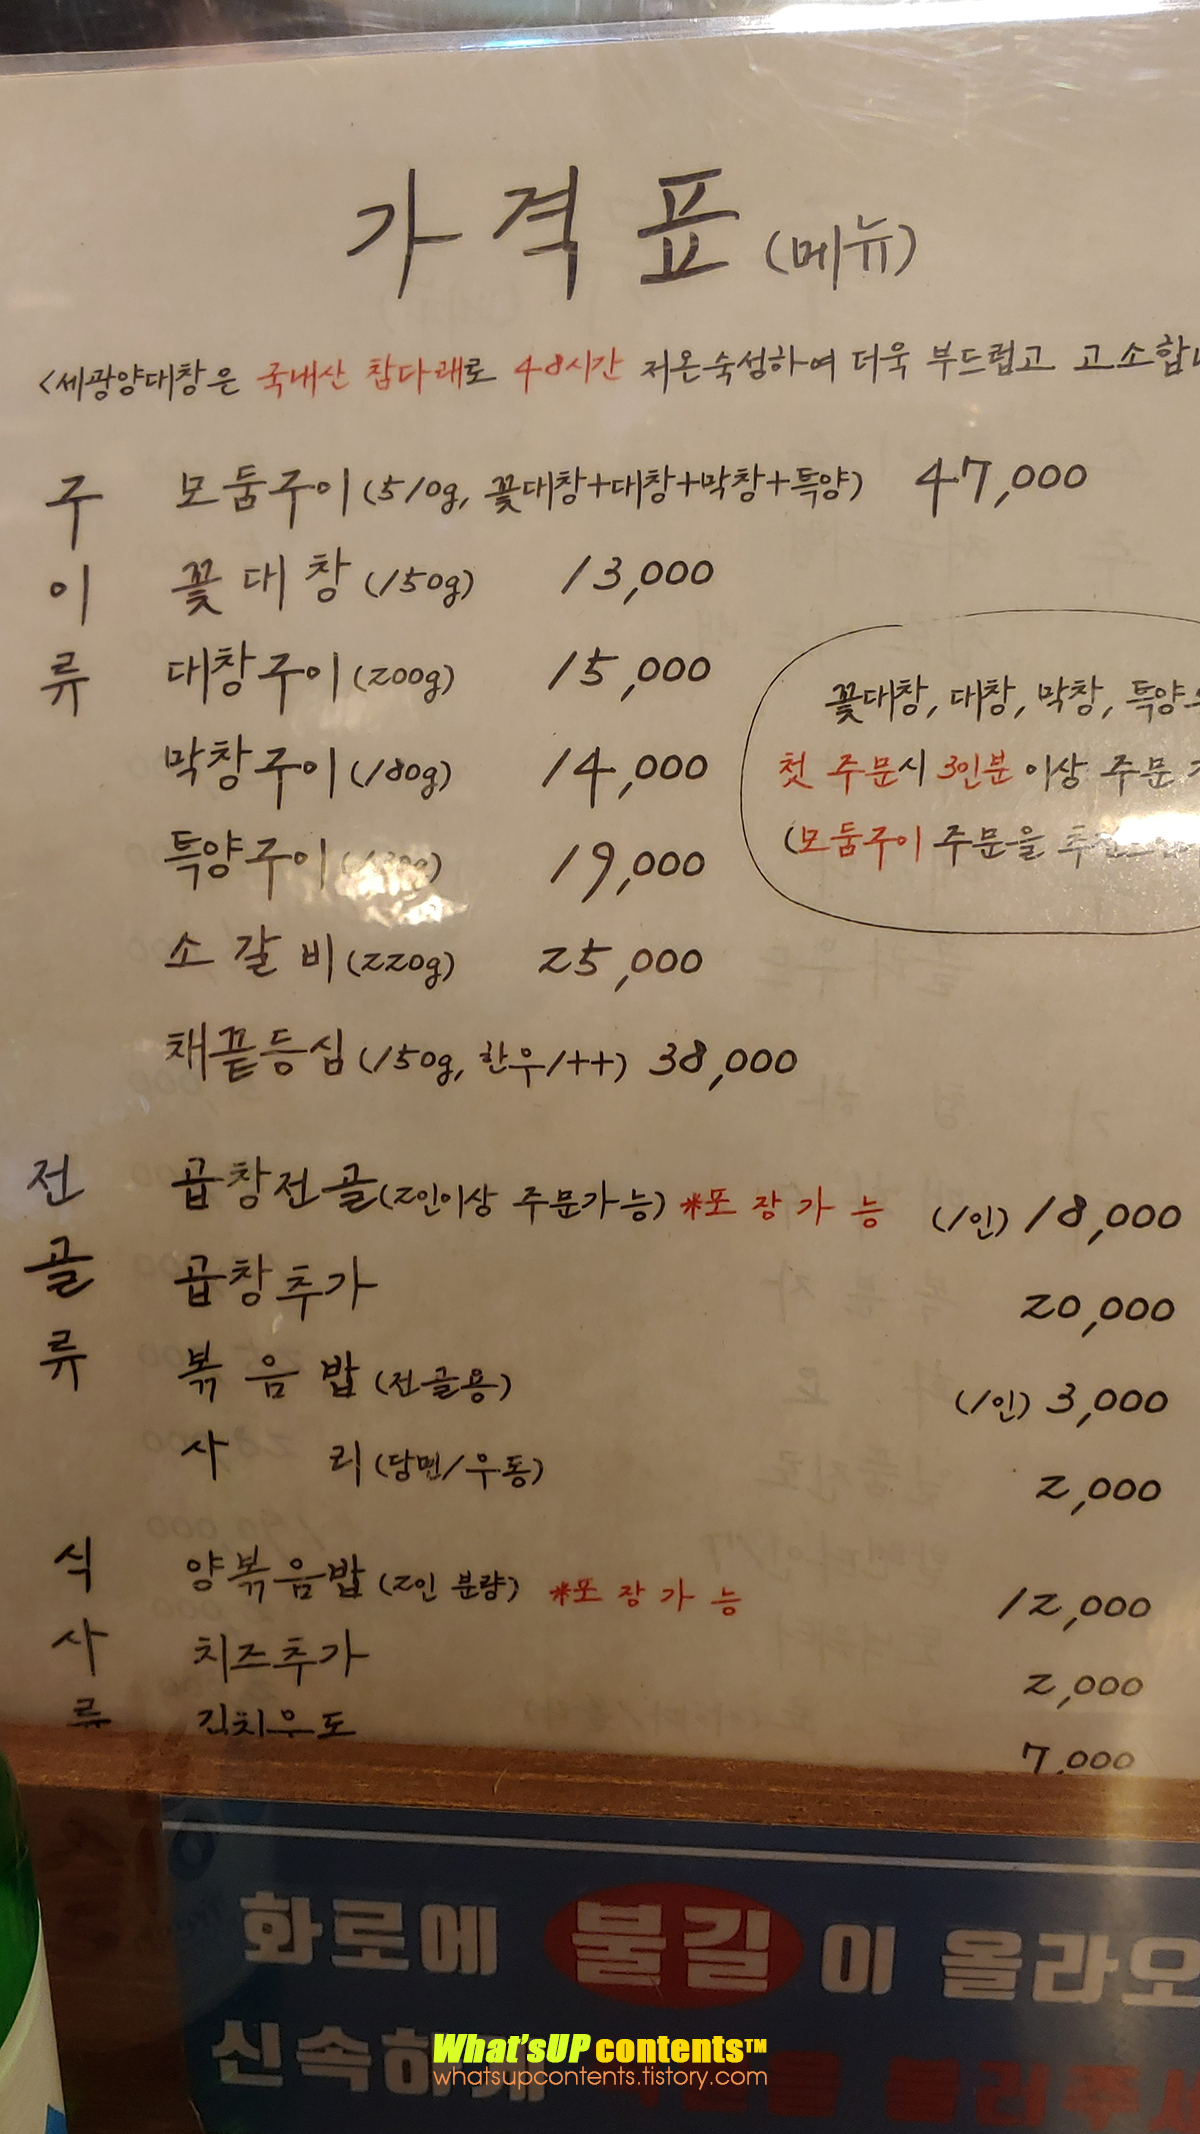 가격표 (메뉴)
<세광양대창은 국내산 참다래로 48시간 저온숙성하여 더욱 부드럽고 고소합니
구이류
모둠구이 (510g, 꽃대창+대창+막창+특양) 47,000
꽃대창 (150g) 13,000
대창구이 (200g) 15,000
막창구이 (180g) 14,000
특양구이 19,000
소갈비 (220g) 25,000
채끝등심 (150g, 한우1++) 38,000
꽃대창, 대창, 막창, 특양
첫 주문시 3인분 이상 주문
(모둠구이 주문을
전골류
곱창전골 (2인이상 주문가능) *포장가능 (1인) 18,000
곱창추가 20,000
볶음밥 (전골용) (1인) 3,000
사리 (당면/우동) 2,000
식사류
양볶음밥 (2인 분량) *포장가능 12,000
치즈추가 2,000
김치우동 7,000
화로에 불길이 올라오
신속하게
What'sUP contents™
whatsupcontents.tistory.com